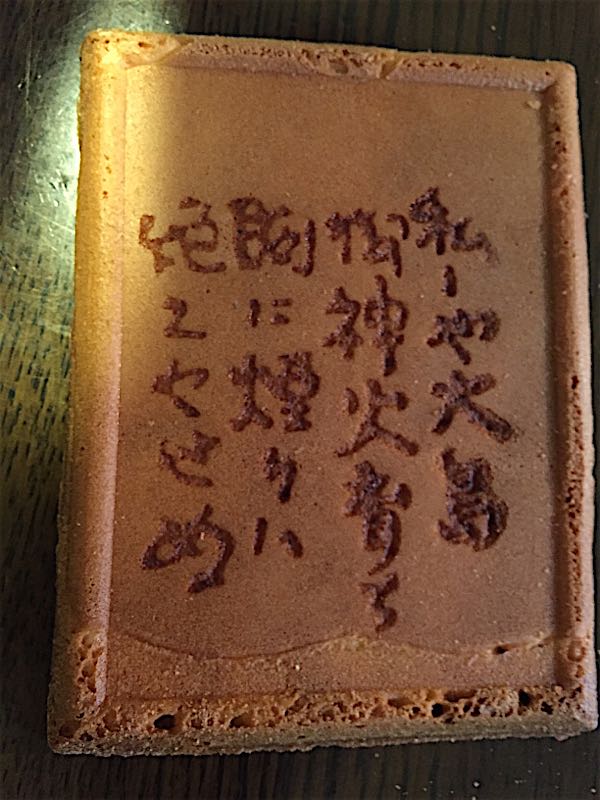 私しや大島
御神火育ち
胸に煙りハ
絶えやせぬ